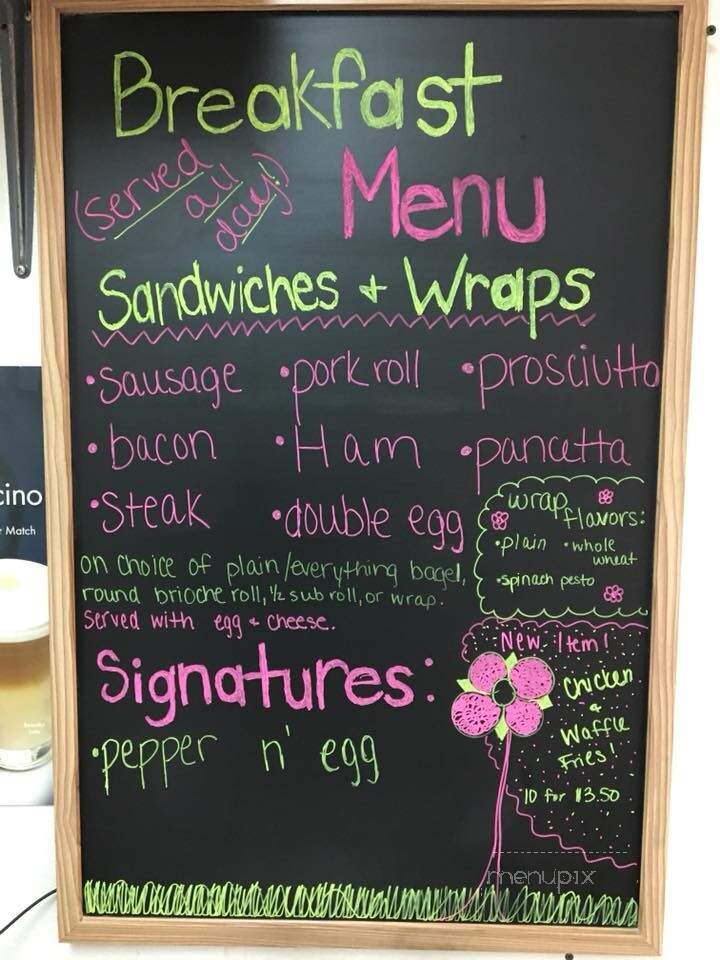 Breakfast
(served all day!)
Menu
Sandwiches + Wraps
• sausage • pork roll • prosciutto
• bacon • Ham • pancetta
• steak • double egg
on choice of plain/everything bagel,
round brioche roll, 1/2 sub roll, or wrap.
Served with egg + cheese.
wrap flavors:
• plain • whole wheat
• spinach pesto
Signatures:
• pepper n' egg
New Item!
Chicken
+
Waffle
Fries!
10 for $3.50
menupix
cino
r Match